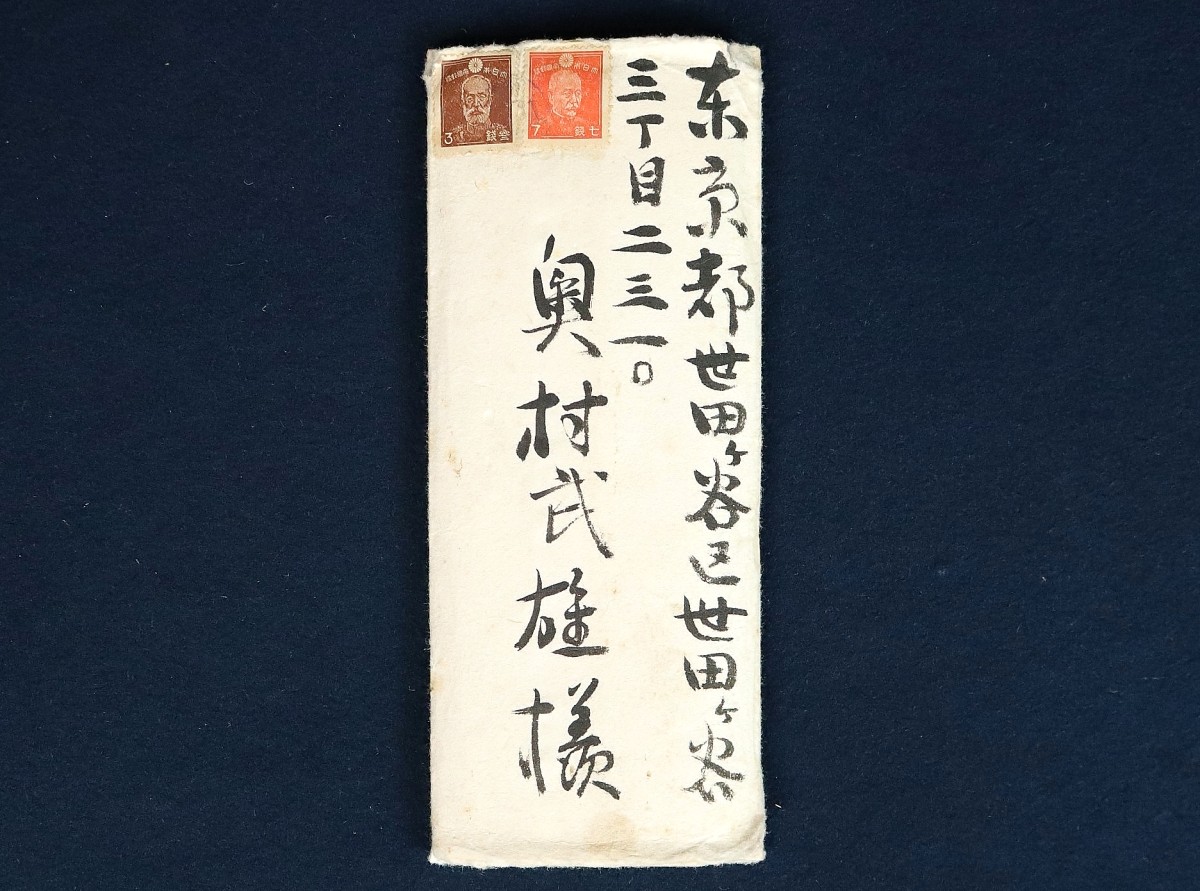 东京都世田ヶ谷区世田ヶ谷
三丁目二三一〇
奥村武雄様
大日本帝國郵便
3 参錢
大日本帝國郵便
7 七錢